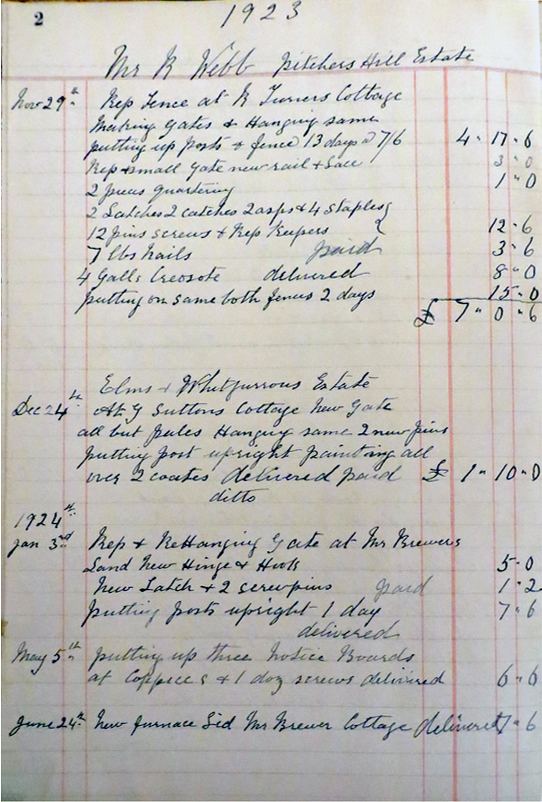 2
1923
Mr R Webb Pitchers Hill Estate
Nov 29th Rep Fence at R Turners Cottage
Making Gates & Hanging same
putting up posts & fence 13 days @ 7/6 4 " 17 " 6
Rep small Gate new rail & 3 " 0
2 pieces quartering 1 " 0
2 Latches 2 catches 2 asps & 4 staples
12 pins screws & Rep Keepers 12 " 6
7 lbs Nails paid 3 " 6
4 Galls Creosote delivered 8 " 0
putting on same both fences 2 days 15 " 0
£ 7 " 0 " 6
Elms & Estate
Dec 24th At G Suttons Cottage New Gate
all but pales Hanging same 2 new pins
putting post upright painting all
over 2 coates delivered paid £ 1 " 10 " 0
ditto
1924th
Jan 3rd Rep & ReHanging Gate at Mr Brewers
Land New Hinge & Hook 5 " 0
New Latch & 2 screwpins paid 1 " 2
putting posts upright 1 day 7 " 6
delivered
May 5th putting up three Notice Boards
at Coppice s & 1 doz screws delivered 6 " 6
June 24th New furnace Lid Mr Brewer Cottage delivered 7 " 6